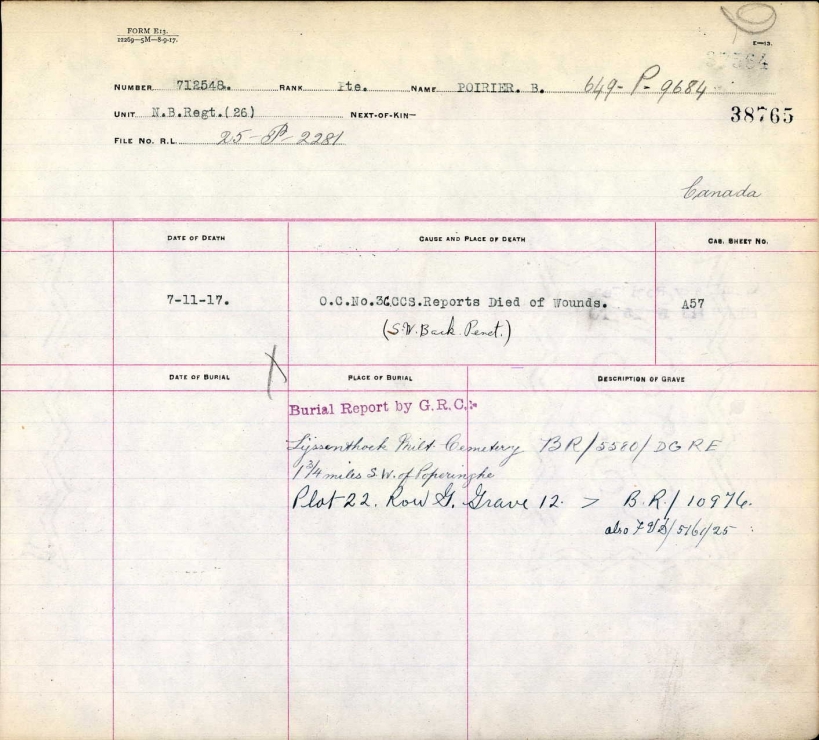 FORM E13.
12269—5M—8-9-17.
E—13.
NUMBER 712548. RANK Pte. NAME POIRIER. B. 649-P-9684
UNIT N.B.Regt.(26) NEXT-OF-KIN—
38765
FILE No. R.L. 25-P-2281
Canada
DATE OF DEATH CAUSE AND PLACE OF DEATH CAS. SHEET No.
7-11-17. O.C.No.3CCS.Reports Died of Wounds. A57
(S.W. Back Penet.)
DATE OF BURIAL PLACE OF BURIAL DESCRIPTION OF GRAVE
Burial Report by G.R.C:-
Lijssenthoek Milt Cemetery BR/5580/DGRE
1 3/4 miles S.W. of Poperinghe
Plot 22. Row G. Grave 12. > B.R./10976.